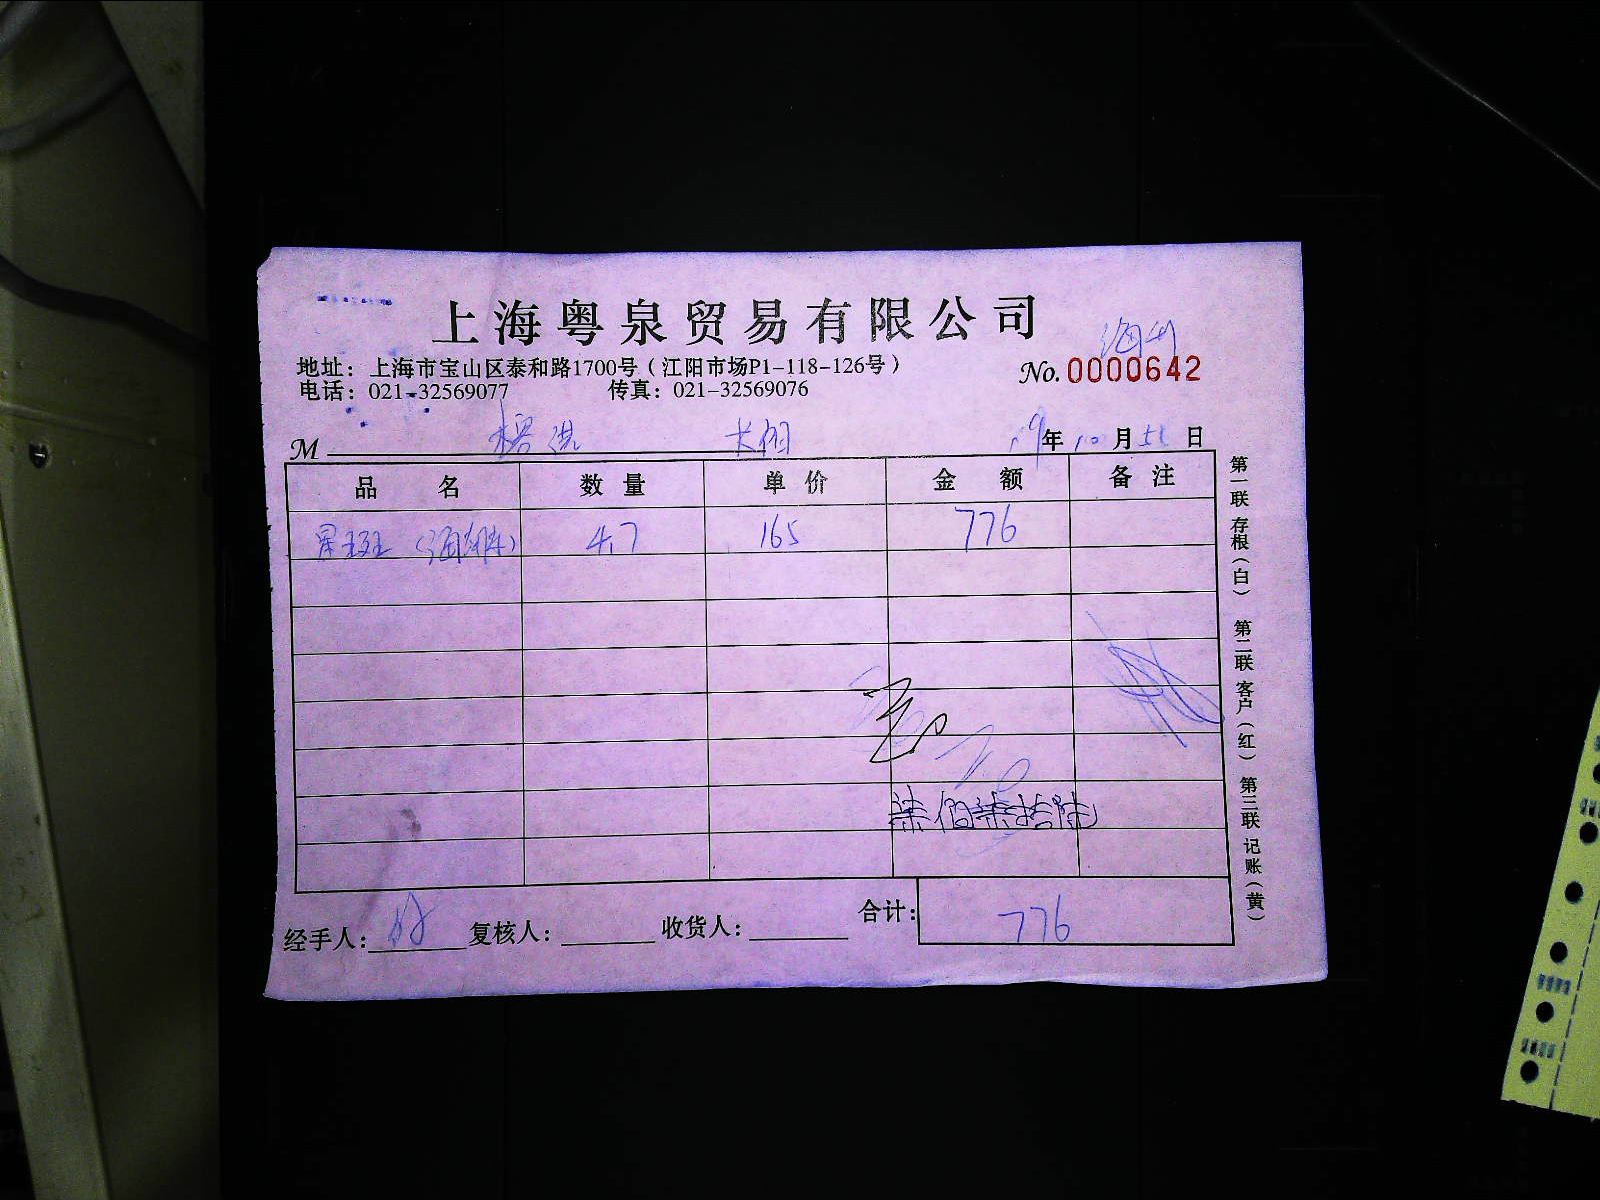 上海粤泉贸易有限公司
地址：上海市宝山区泰和路1700号（江阳市场P1-118-126号）
No. 0000642
电话：021-32569077 传真：021-32569076
M
19年10月 日
品名 数量 单价 金额 备注
星斑 4.7 165 776
柒佰柒拾陆
经手人： 复核人： 收货人： 合计：776
第一联 存根（白） 第二联 客户（红） 第三联 记账（黄）